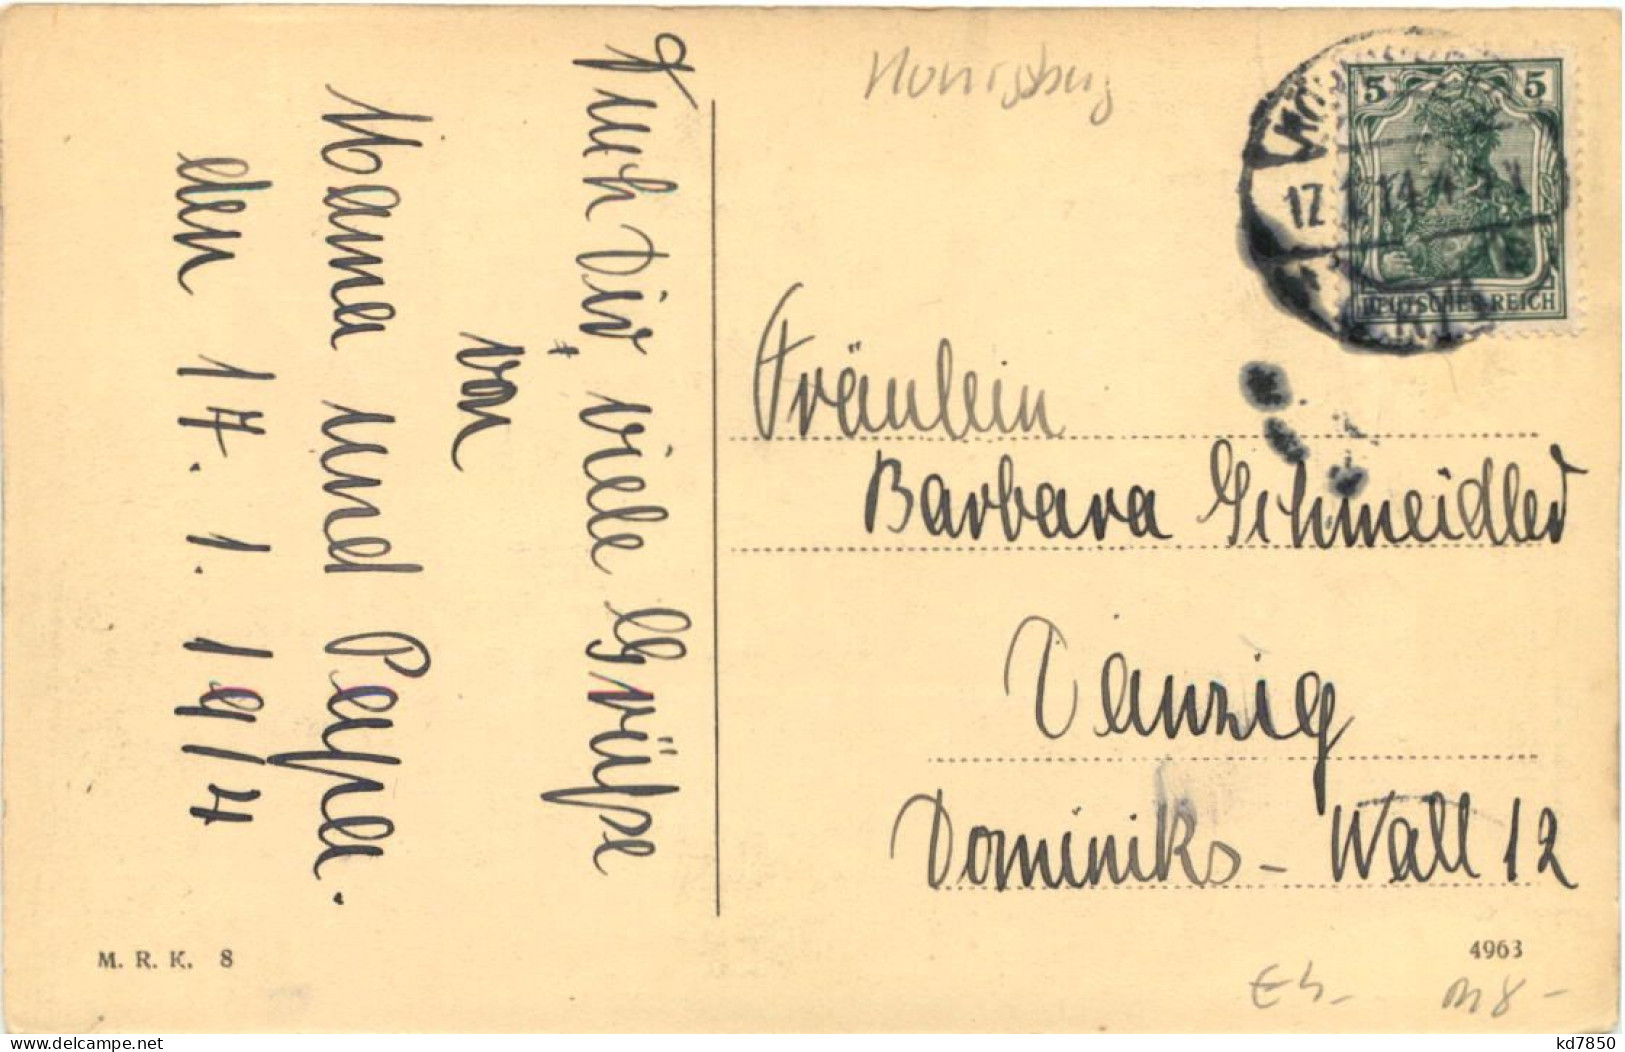 Auch Dir, viele Grüße
von
Mama und Papa.
den 17. 1. 1914
M. R. K. 8
5 5
17.1.14.4-5N
DEUTSCHES REICH
Fräulein
Barbara Schmeidler
Danzig
Dominiks-Wall 12
4963
M8-
kd7850